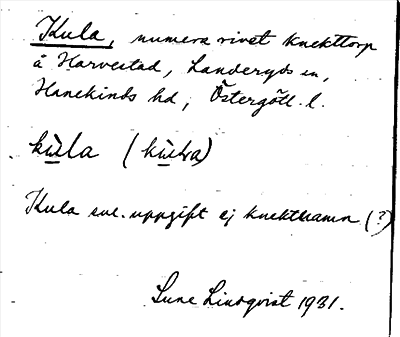 Kula, numera rivet knekttorp
å Harvestad, Landeryds sn,
Hanekinds hd, Östergötl. l.
kùla (kùlra)
Kula enl. uppgift ej knektnamn (?)
Sune Lindqvist 1931.